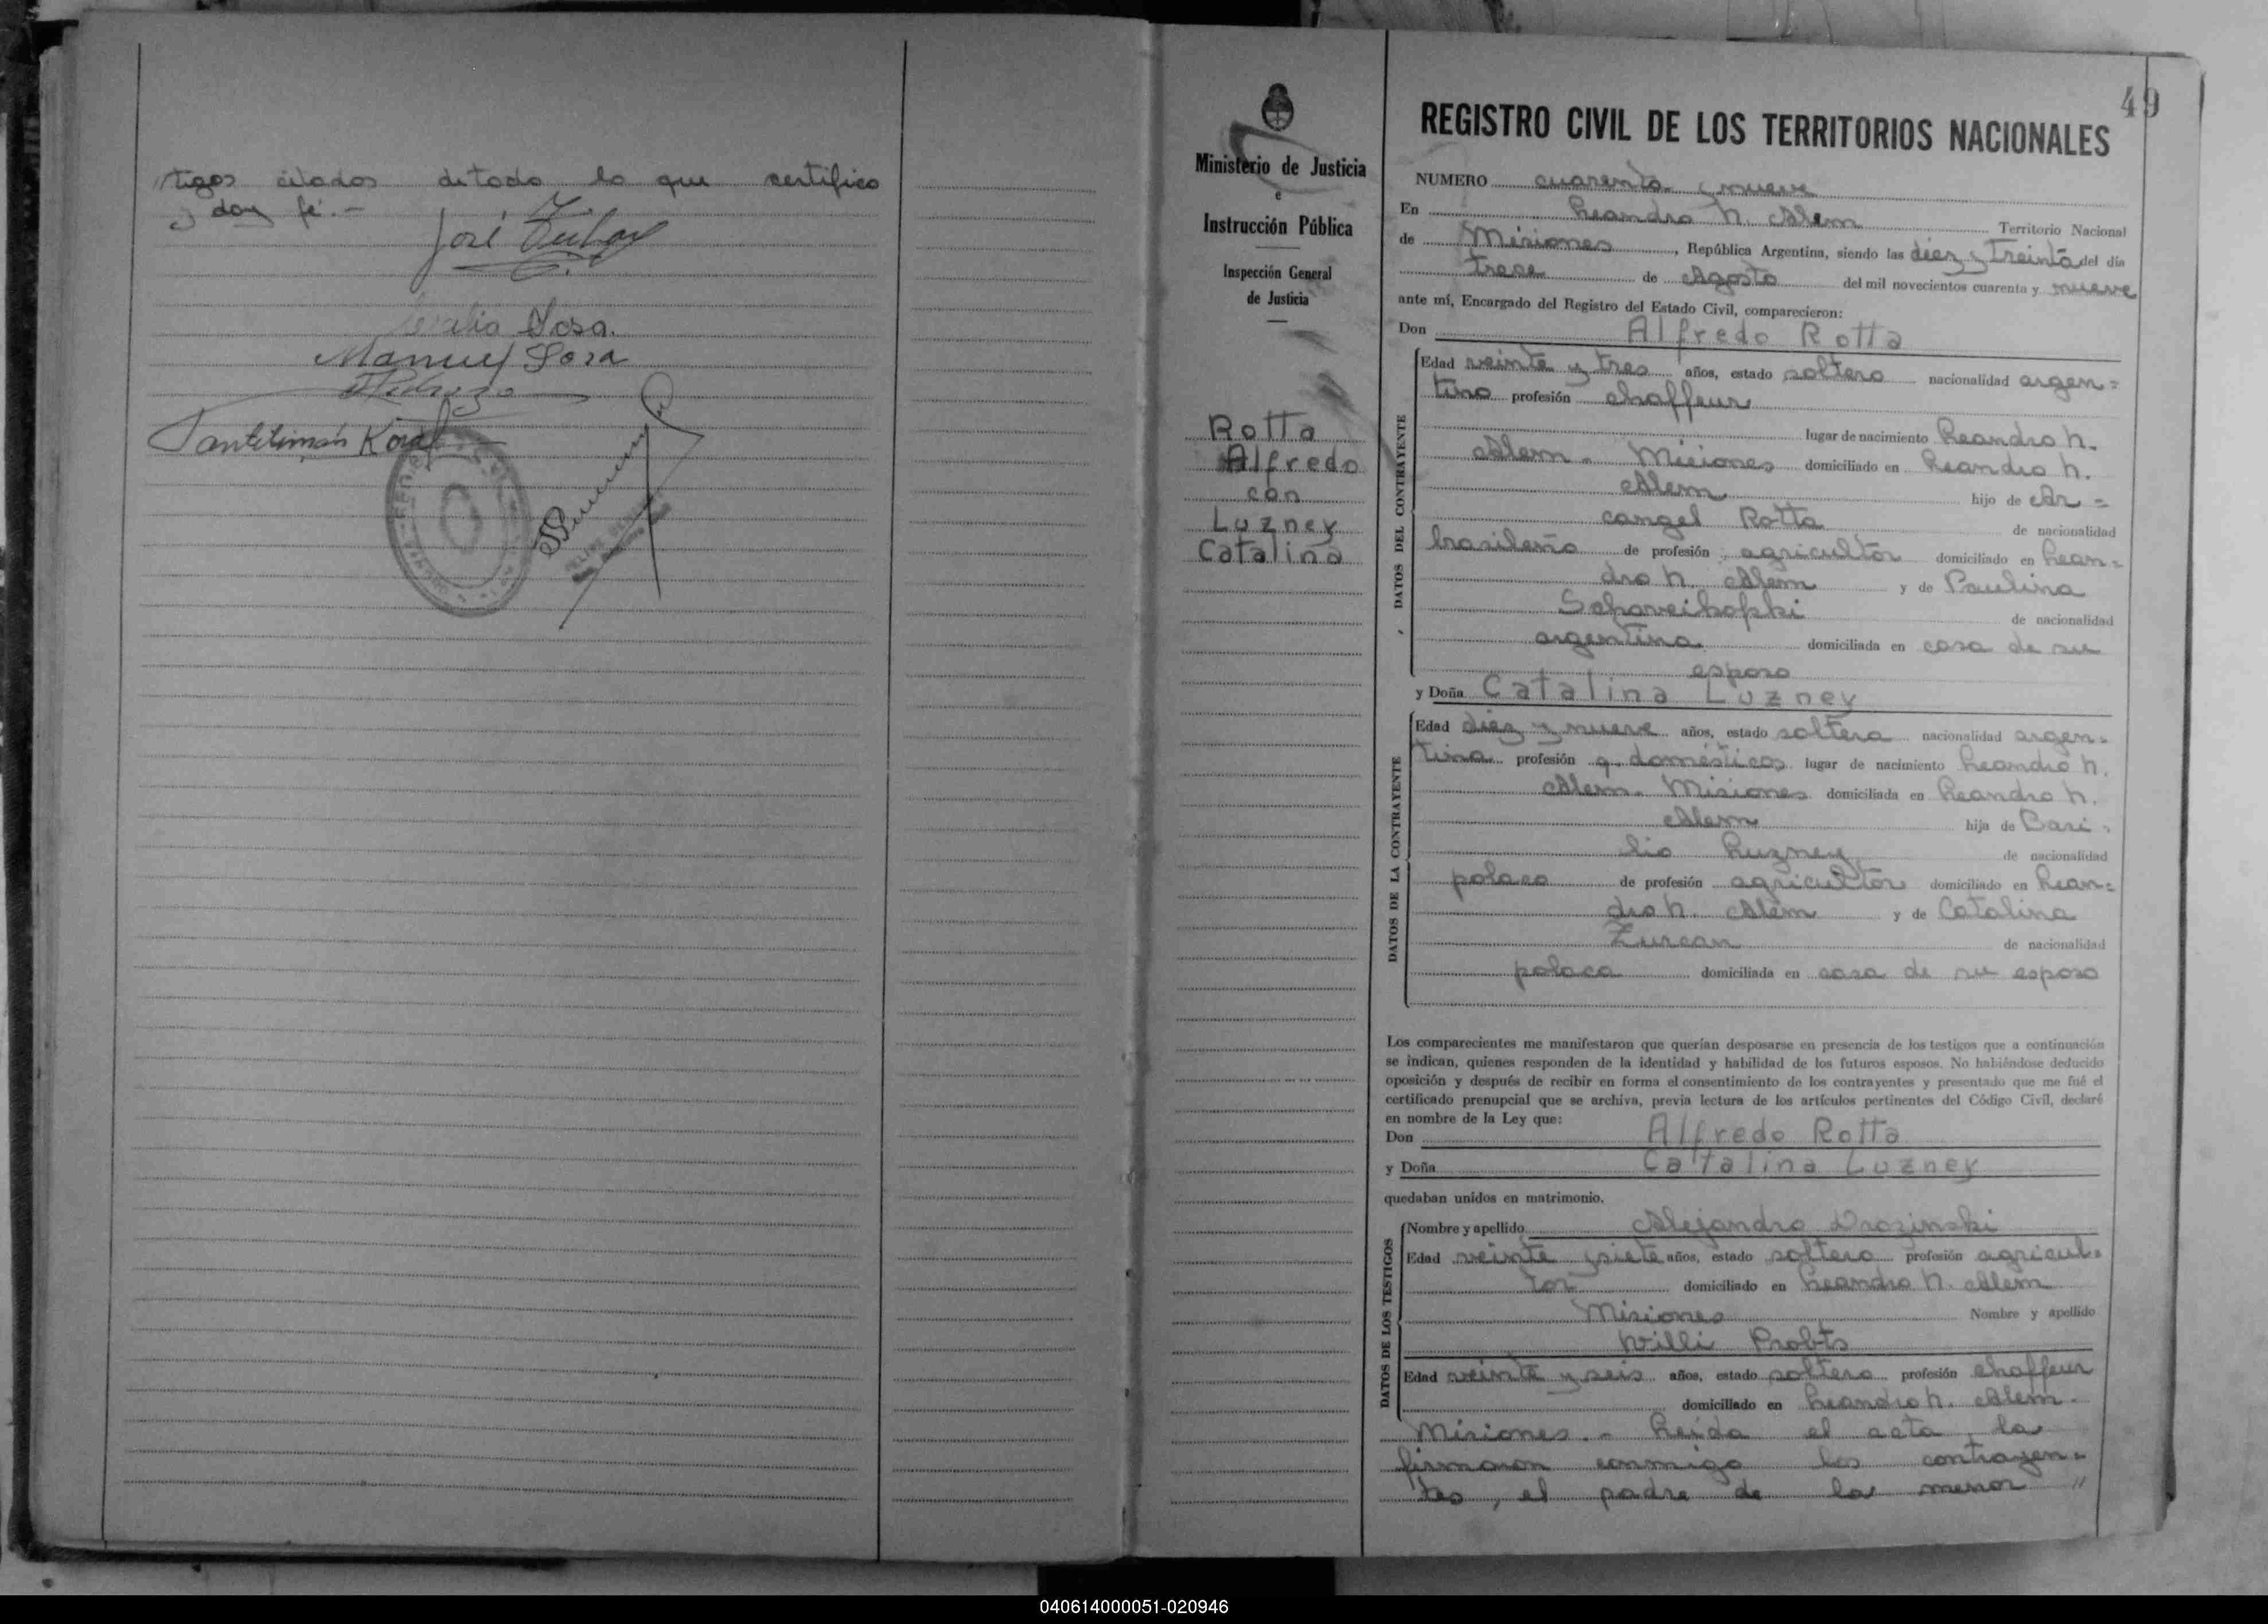 "tigos citados de todo lo que certifico
y doy fé.-
José
Sosa.
Manuel Sosa
49
Ministerio de Justicia
e
Instrucción Pública
Inspección General
de Justicia
Rotta
Alfredo
con
Luzney
Catalina
REGISTRO CIVIL DE LOS TERRITORIOS NACIONALES
NUMERO cuarenta y nueve
En Leandro N. Alem Territorio Nacional
de Misiones, República Argentina, siendo las diez y treinta del día
trece de Agosto del mil novecientos cuarenta y nueve
ante mí, Encargado del Registro del Estado Civil, comparecieron:
Don Alfredo Rotta
DATOS DEL CONTRAYENTE
Edad veinte y tres años, estado soltero nacionalidad argen=
tino profesión chaffeur
lugar de nacimiento Leandro N.
Alem - Misiones domiciliado en Leandro N.
Alem hijo de Ar=
cangel Rotta de nacionalidad
brasileño de profesión agricultor domiciliado en Lean=
dro N. Alem y de Paulina
de nacionalidad
argentina domiciliada en casa de su
esposo
y Doña Catalina Luzney
DATOS DE LA CONTRAYENTE
Edad diez y nueve años, estado soltera nacionalidad argen=
tina profesión q. domésticos lugar de nacimiento Leandro N.
Alem - Misiones domiciliada en Leandro N.
Alem hija de Basi=
lio Luzney de nacionalidad
polaco de profesión agricultor domiciliado en Lean=
dro N. Alem y de Catalina
Zurcan de nacionalidad
polaca domiciliada en casa de su esposo
Los comparecientes me manifestaron que querían desposarse en presencia de los testigos que a continuación
se indican, quienes responden de la identidad y habilidad de los futuros esposos. No habiéndose deducido
oposición y después de recibir en forma el consentimiento de los contrayentes y presentado que me fué el
certificado prenupcial que se archiva, previa lectura de los artículos pertinentes del Código Civil, declaré
en nombre de la Ley que:
Don Alfredo Rotta
y Doña Catalina Luzney
quedaban unidos en matrimonio.
DATOS DE LOS TESTIGOS
Nombre y apellido Alejandro Drozinski
Edad veinte y siete años, estado soltero profesión agricul=
tor domiciliado en Leandro N. Alem
Misiones Nombre y apellido
Willi Probts
Edad veinte y seis años, estado soltero profesión chaffeur
domiciliado en Leandro N. Alem -
Misiones.- Leida el acta la
firmaron conmigo los contrayen=
tes, el padre de la menor "
040614000051-020946